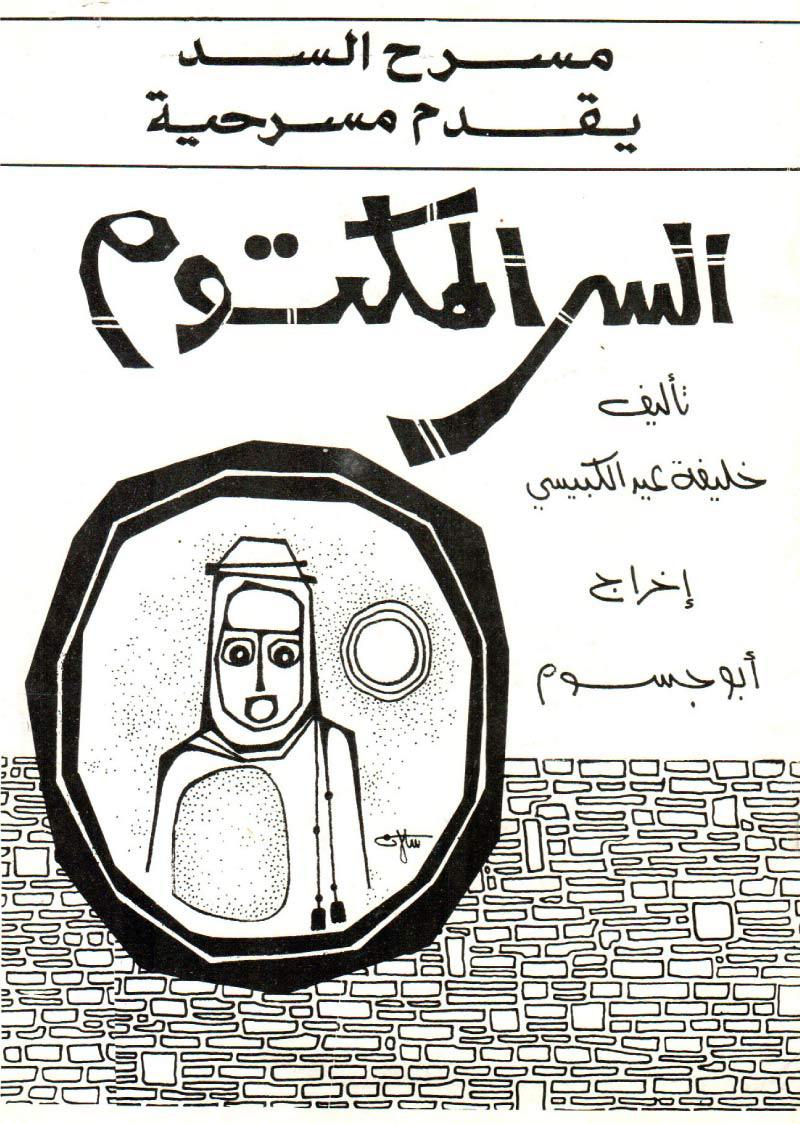 مسرح السد
يقدم مسرحية
السر المكتوم
تأليف
خليفة عيد الكبيسي
إخراج
أبو جسوم